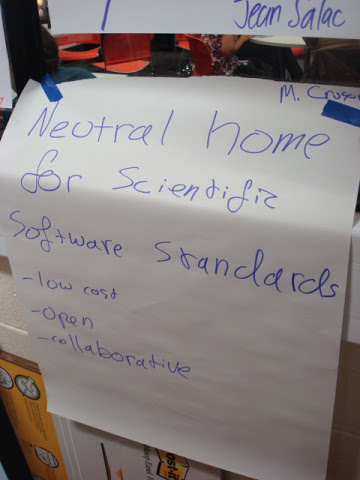 Jean Salac
M.
Neutral home
for Scientific
Software Standards
-low cost
-Open
-collaborative